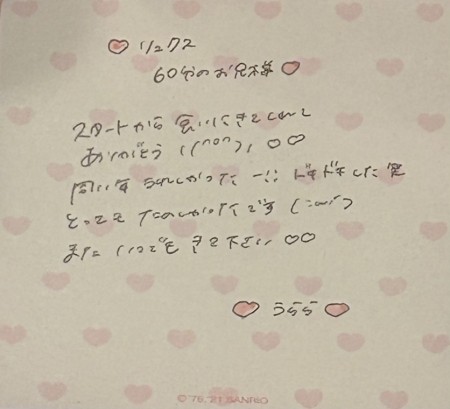 ♡ 1/27ス
60分のお兄様♡
スタートから会いにきてくれて
ありがとう ♡♡
うれしかったー!! ドキドキした
とっても たのしかったです
また いつでも きて下さい ♡♡
♡ うらら ♡
© '76, '21 SANRIO